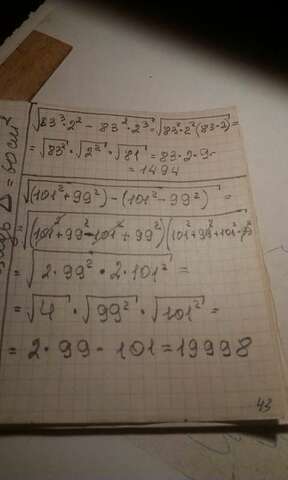 √83³·2² - 83²·2³ = √83²·2²(83-2) =
= √83²·√2²·√81 = 83·2·9=
= 1494
√(101²+99²)-(101²-99²) =
= √(101²+99²-101²+99²)(101²+99²+101²-99²)
= √2·99²·2·101² =
= √4·√99²·√101² =
= 2·99-101=19998
43